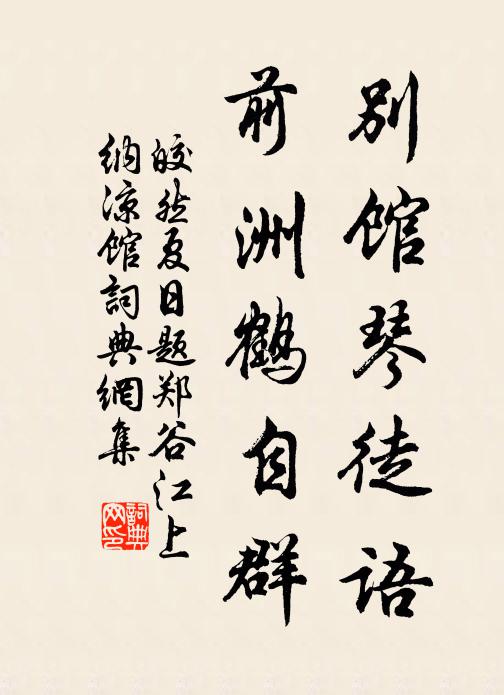 别馆琴徒语
前洲鹤自群
皎然夏日题郑谷江上
纳凉馆詞典網集
詞典网印